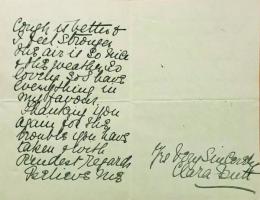 Cough is better &
I feel stronger
the air is so nice
& the weather so
lovely so I have
everything in
my favour.
Thanking you
again for the
trouble you have
taken & with
kindest regards
Believe me
Yrs very Sincerely
Clara Butt